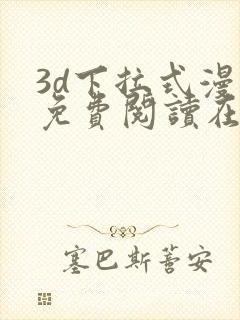 3d下拉式漫
免費閱讀在
塞巴斯蒈安